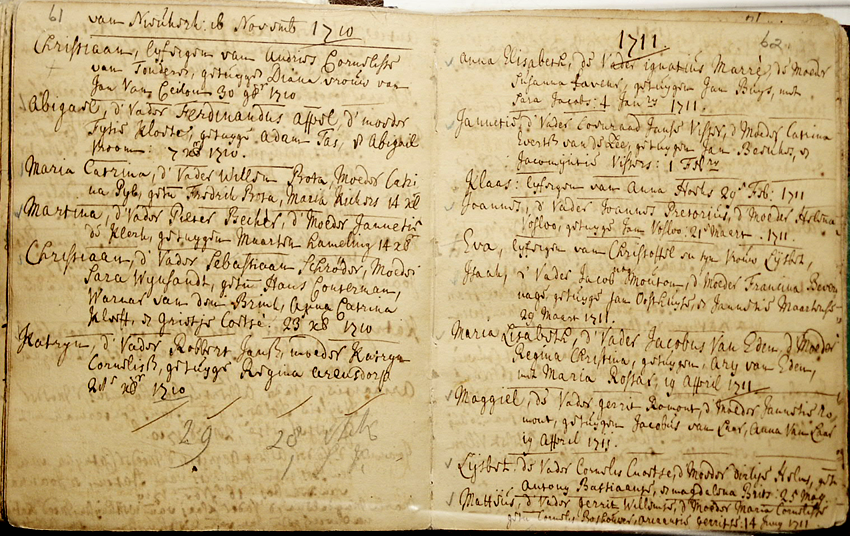 61
van Nieukerk: 16 Novemb 1710
Christiaan, lyfeygen van Andries Cornelisse
van Tonderen, getuyge Diana vrouw van
Jan Van Ceilon 30 9br 1710
Abigael, d' Vader Ferdinandus Appel, d' moeder
Fytie Kloete, getuyge Adam Tas, & Abigail
Vroom: 7 xb 1710.
Maria Catrina, d' Vader Willem Bota, Moeder Catri
na Pyl, getu Fredrik Bota, Maria Kickers 14 xb
Martina, d' Vader Pieter Becker, d' Moeder Jannetie
de Klerk, getuygen Maarten Rameling 14 xb
Christiaan, d' Vader Sebastiaan Schröder, Moeder
Sara Wynsandt, getu Hans Conterman,
Warnar van den Brink, Anna Catrina
Kleeff, & Grietje Coetse: 23 xb 1710
Katryn, d' Vader Robbert Jansz, moeder Katryn
Cornelisz, getuyge Regina
28 xbr 1710
29 28
62
1711
Anna Elisabeth, de Vader Ignatius Marré, de Moeder
Susanna getuygen Jan Buys, met
Sara Jacobs: 4 Jan 1711.
Jannetie, d' Vader Coenraad Janse Visser, d Moeder Catrina
Everts van der Lee, getuygen Jan
Jacomijntie Vissers: 1 Feb
Klaas: lyfeygen van Anna Hoeks 20 Feb: 1711
Joannes, d' Vader Joannes Pretorius, d Moeder Helena
Vosloo, getuyge Jan Vosloo: 21 Maert 1711.
Eva, lyfeygen van Christoffel en syn Vrouw Lysbet,
Isaak, d' Vader Jacob Mouton, d Moeder Francina Beven
nage, getuyge Jan Oosthuyse, & Jannetie Maartens
29 Maert 1711.
Maria Lisabeth, d' Vader Jacobus Van Eden, d Moeder
Regina Christina, getuygen, Ary van Eden,
met Maria Rossar, 19 April 1711
Maggiel, de Vader gerrit Romont, d Moeder Jannetie Ro
mont, getuygen Jacobus van Laar, Anna Van Laar
19 April 1711.
Lysbet: de Vader Cornelis Coertse, d Moeder Helms, getu
Antony Bastiaanse, & magdalena Brits: 25 May.
Matteus, d' Vader gerrit Willemse, d Moeder Maria Cornelisse
getu Cornelis gerritse: 14 Juny 1711